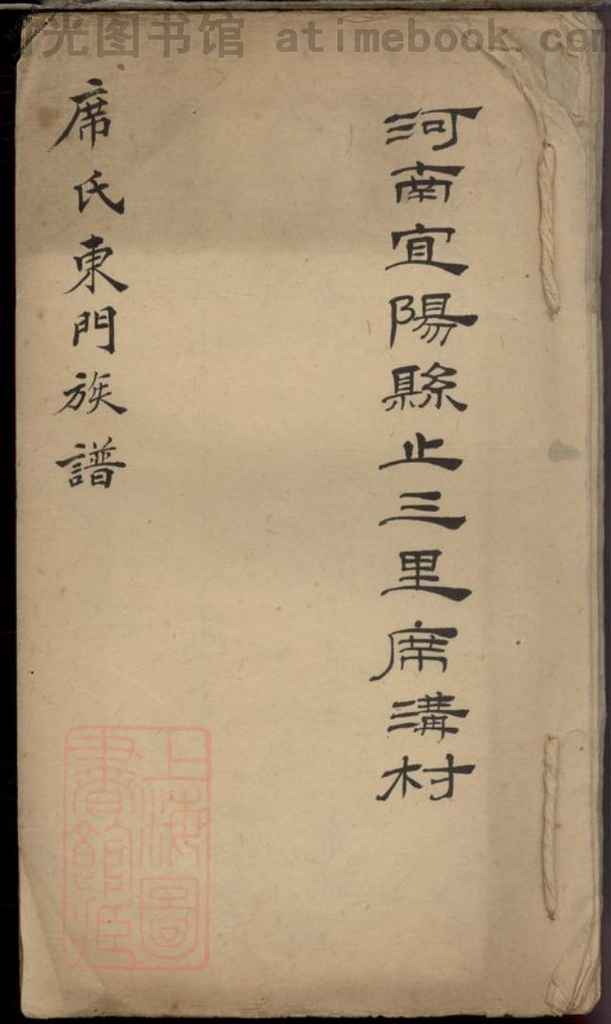 光图书馆 atimebook.com
河南宜陽縣止三里席溝村
席氏東門族譜
上海圖
書館藏